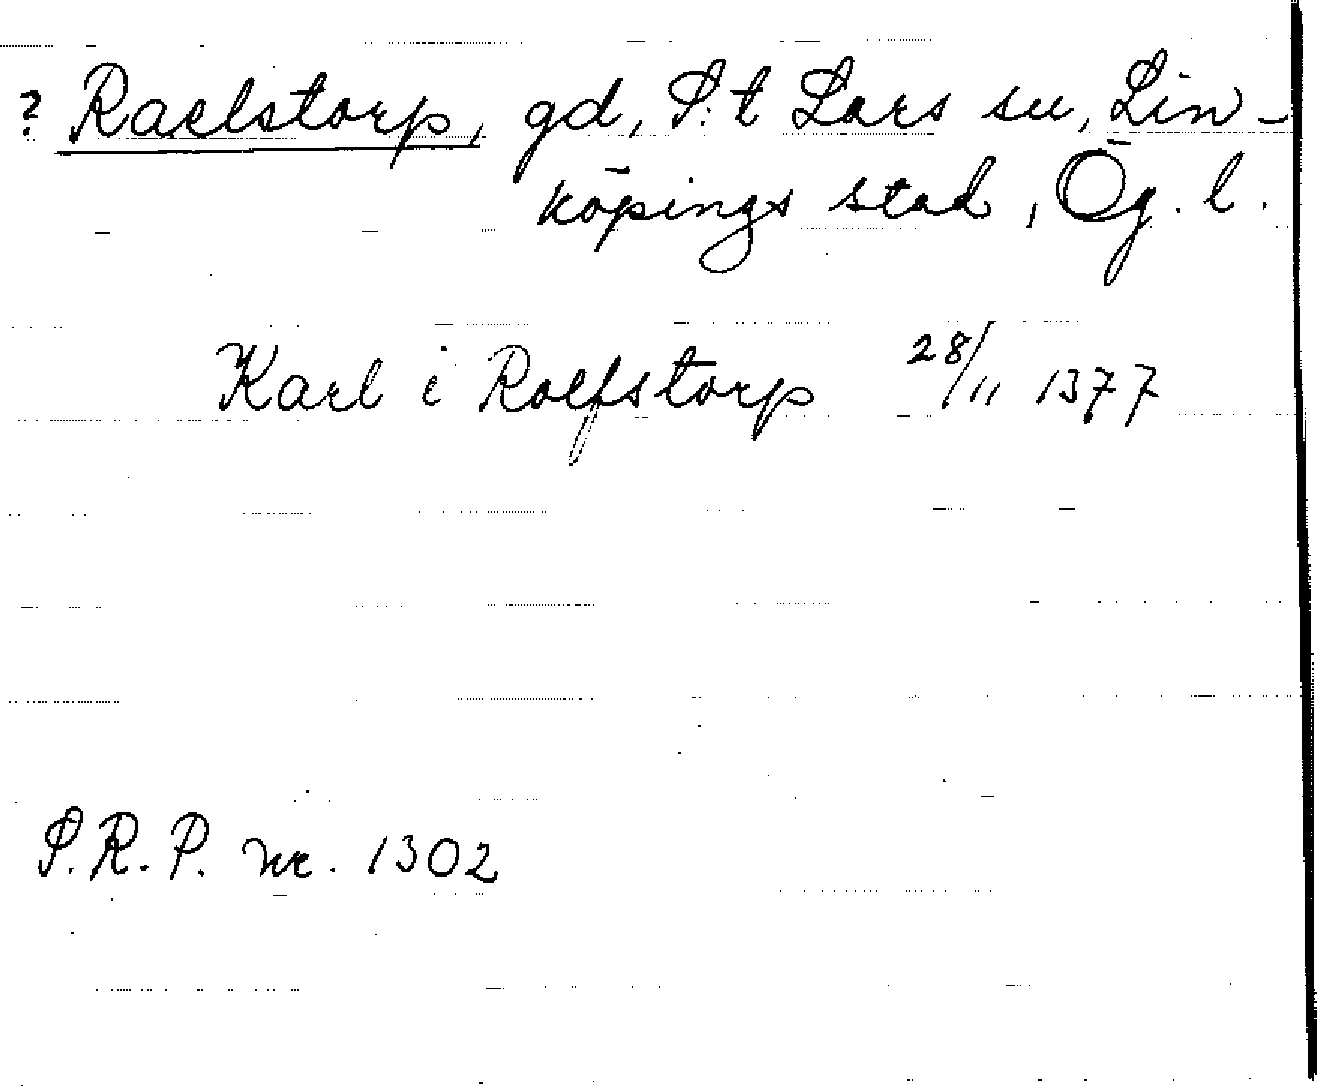 ? Raelstorp, gd, S:t Lars sn, Lin-
köpings stad, Ög. l.
Karl i Rolfstorp 28/11 1377
S.R.P. nr. 1302